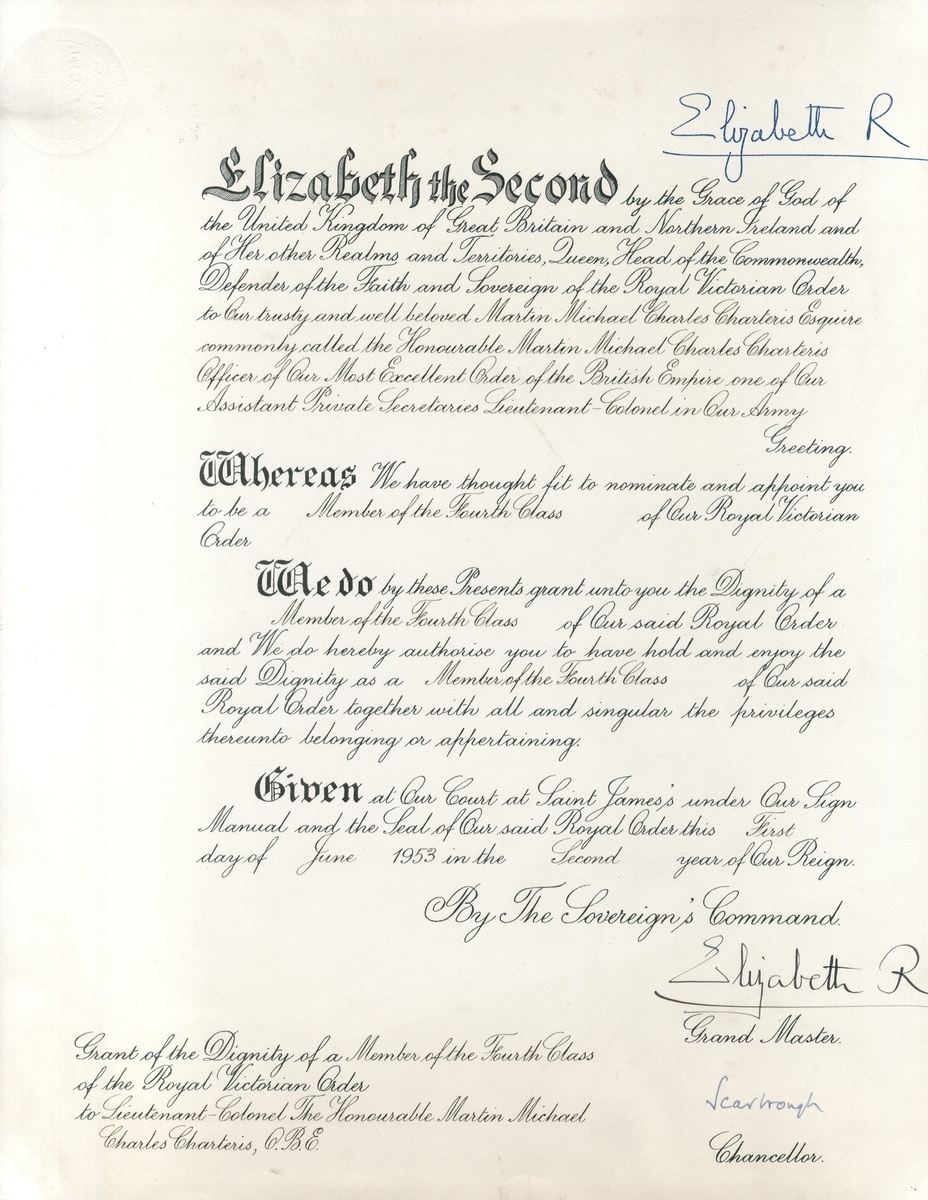 Elizabeth R
Elizabeth the Second by the Grace of God of
the United Kingdom of Great Britain and Northern Ireland and
of Her other Realms and Territories, Queen, Head of the Commonwealth,
Defender of the Faith and Sovereign of the Royal Victorian Order
to Our trusty and well beloved Martin Michael Charles Charteris Esquire
commonly called the Honourable Martin Michael Charles Charteris
Officer of Our Most Excellent Order of the British Empire one of Our
Assistant Private Secretaries Lieutenant-Colonel in Our Army
Greeting.
Whereas We have thought fit to nominate and appoint you
to be a Member of the Fourth Class of Our Royal Victorian
Order
We do by these Presents grant unto you the Dignity of a
Member of the Fourth Class of Our said Royal Order
and We do hereby authorise you to have hold and enjoy the
said Dignity as a Member of the Fourth Class of Our said
Royal Order together with all and singular the privileges
thereunto belonging or appertaining.
Given at Our Court at Saint James's under Our Sign
Manual and the Seal of Our said Royal Order this First
day of June 1953 in the Second year of Our Reign.
By The Sovereign's Command.
Elizabeth R
Grand Master.
Grant of the Dignity of a Member of the Fourth Class
of the Royal Victorian Order
to Lieutenant-Colonel The Honourable Martin Michael
Charles Charteris, O.B.E.
Scarbrough
Chancellor.